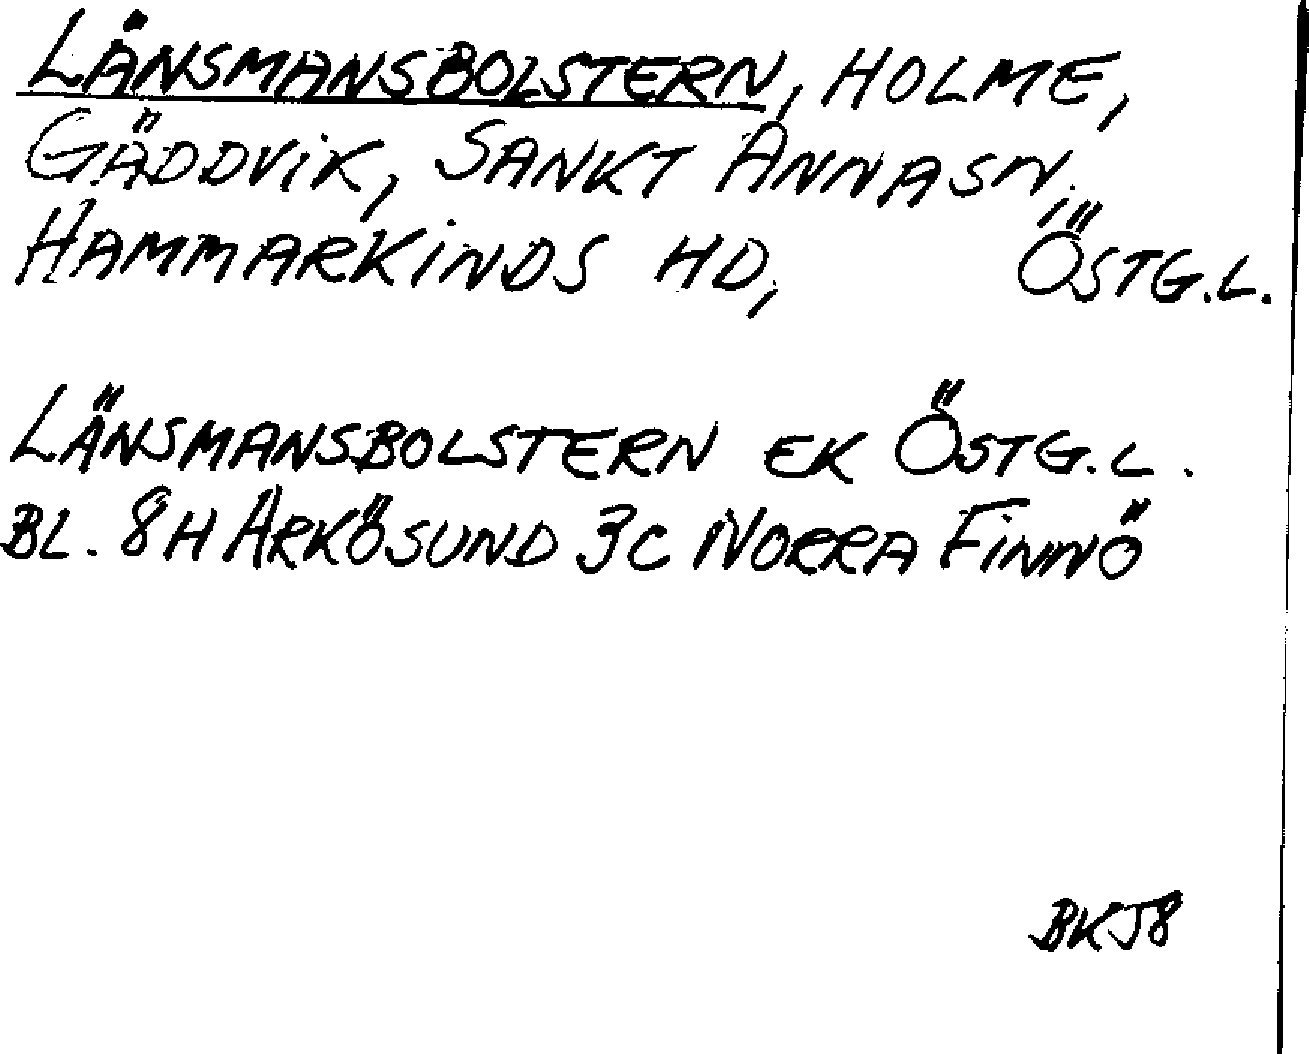 LÄNSMANSBOLSTERN, HOLME,
GÄDDVIK, SANKT ANNA SN,
HAMMARKINDS HD, ÖSTG.L.
LÄNSMANSBOLSTERN EK ÖSTG.L.
BL. 8H ARKÖSUND 3C NORRA FINNÖ
BKJ8